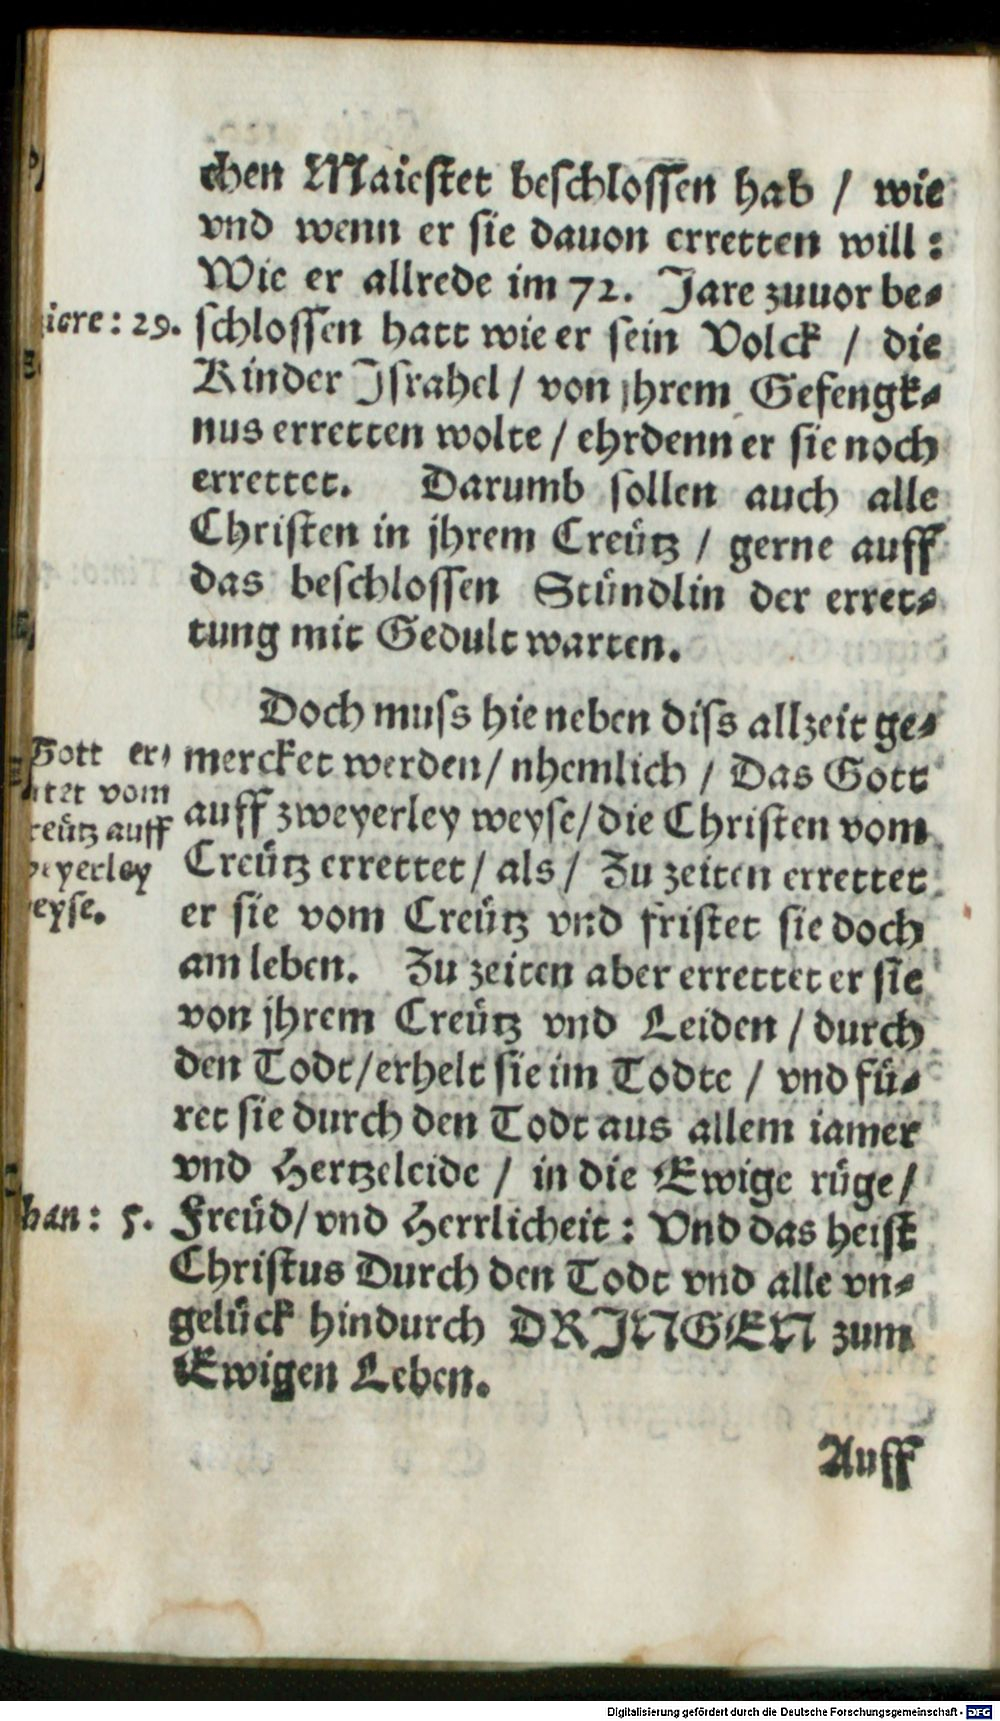 chen Maiestet beschlossen hab / wie
vnd wenn er sie dauon erretten will :
Wie er allrede im 72. Jare zuuor be⸗
iere : 29.
schlossen hatt wie er sein Volck / die
Kinder Jsrahel / von jhrem Gefengk⸗
nus erretten wolte / ehrdenn er sie noch
errettet. Darumb sollen auch alle
Christen in jhrem Creütz / gerne auff
das beschlossen Stündlin der erret⸗
tung mit Gedult warten.
Doch muss hie neben diss allzeit ge⸗
mercket werden / nhemlich / Das Gott
auff zweyerley weyse / die Christen vom
Creütz errettet / als / Zu zeiten errettet
er sie vom Creütz vnd fristet sie doch
am leben. Zu zeiten aber errettet er sie
von jhrem Creütz vnd Leiden / durch
den Todt / erhelt sie im Todte / vnd fü⸗
ret sie durch den Todt aus allem iamer
vnd Hertzeleide / in die Ewige rüge /
Freüd / vnd Herrlicheit : Vnd das heist
Christus Durch den Todt vnd alle vn⸗
gelück hindurch DRINGEN zum
Ewigen Leben.
Gott er⸗
tet vom
reütz auff
eyerley
eyse.
han : 5.
Auff
Digitalisierung gefördert durch die Deutsche Forschungsgemeinschaft - DFG